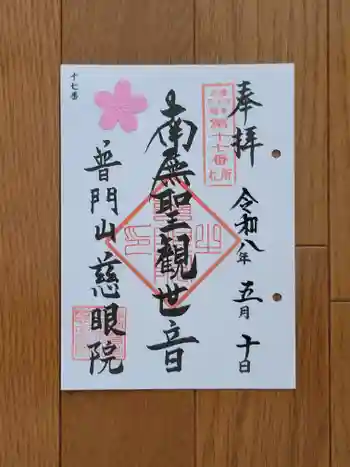 奉拝
令和八年 五月 十日
第十七番
札所
南無聖観世音
普門山 慈眼院
十七番